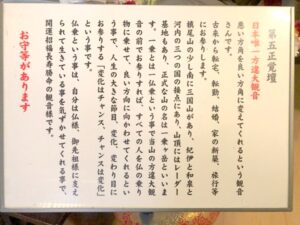 第五正覚壇
日本唯一方違大観音
悪い方角を良い方角に変えてくれるという観音
さんです。
古来から転宅、転勤、結婚、家の新築、旅行等
にお参りします。
槇尾山の少し南に三国山があり、紀伊と和泉と
河内の三つの国の接点にあり、山頂にはレーダー
基地もあり、正式な山の名は一乗ヶ岳といいま
す。一乗とは一仏乗という事で当山の方違大観
音の前でお参りすれば、すべての人を仏の乗り
物に乗せて、いい方向に向かわせてくれるとい
う事で、人生の大きな節目、変化、変わり目に
お参りする「変化はチャンス、チャンスは変化」
という事です。
仏乗という事は、自分は仏様、御先祖様に支え
られて生きている事を気ずかせてくれる事で、
開運招福長寿勝命の観音様です。
お守等があります